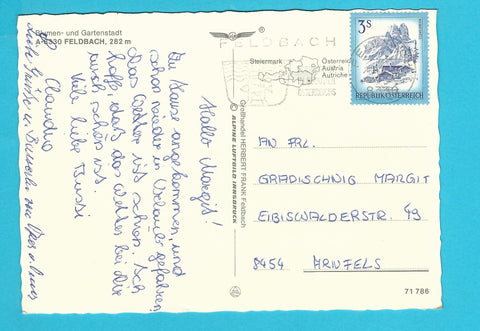 Blumen- und Gartenstadt
A-8330 FELDBACH, 282 m
Hallo Margit!
zu Hause angekommen, und
schon wieder in Urlaub gefahren.
Das Wetter ist schön. Ich
hoffe, dass das Wetter bei dir
auch schön ist.
Viele liebe Bussi
Claudia
liebe Grüße u. Busserln von
Großhandel HERBERT FRANK Feldbach
ALPINE LUFTBILD INNSBRUCK
FELDBACH
Steiermark
Österreich
Austria
Autriche
3 S
REPUBLIK ÖSTERREICH
AN FRL.
GRADISCHNIG MARGIT
EIBISWALDERSTR. 49
8454 ARNFELS
71 786